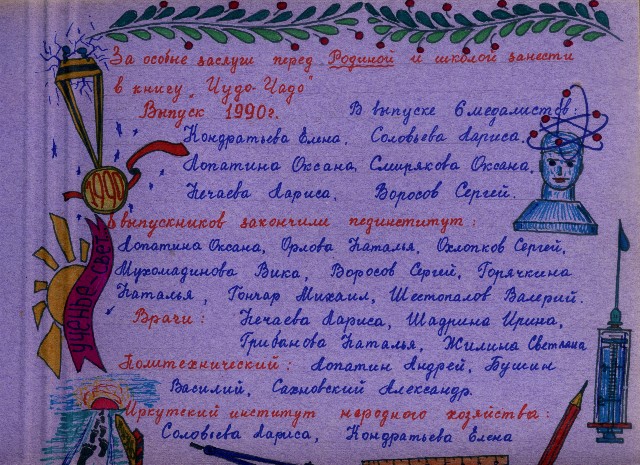 За особые заслуги перед Родиной и школой занести
в книгу "Чудо-Чадо"
Выпуск 1990г. В выпуске 6 медалистов:
Кондратьева Елена, Соловьева Лариса,
Лопатина Оксана, Смирякова Оксана,
Нечаева Лариса, Воросов Сергей.
1990
8 выпускников закончили пединститут:
Лопатина Оксана, Орлова Наталья, Охлопков Сергей,
Мухомадинова Вика, Воросов Сергей, Горячкина
Наталья, Гончар Михаил, Шестопалов Валерий.
ученье-свет
Врачи: Нечаева Лариса, Шадрина Ирина,
Грибанова Наталья, Жилина Светлана
Политехнический: Лопатин Андрей, Бушин
Василий, Сахновский Александр.
Иркутский институт народного хозяйства:
Соловьева Лариса, Кондратьева Елена